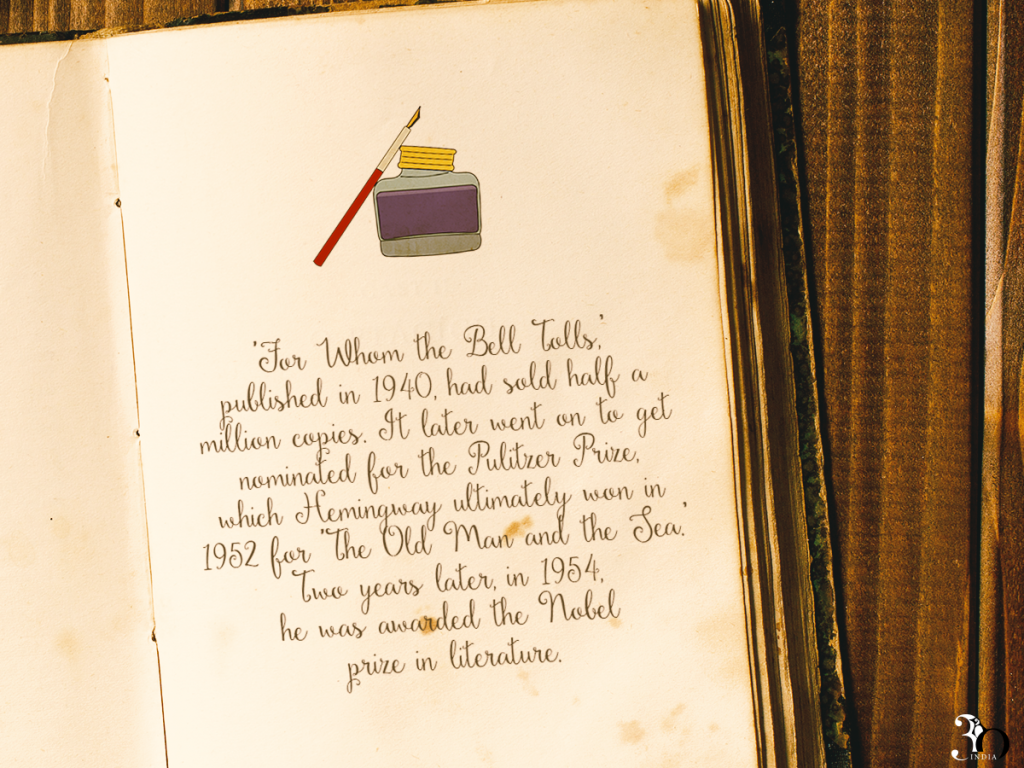 'For Whom the Bell Tolls,'
published in 1940, had sold half a
million copies. It later went on to get
nominated for the Pulitzer Prize,
which Hemingway ultimately won in
1952 for 'The Old Man and the Sea.'
Two years later, in 1954,
he was awarded the Nobel
prize in literature.
INDIA